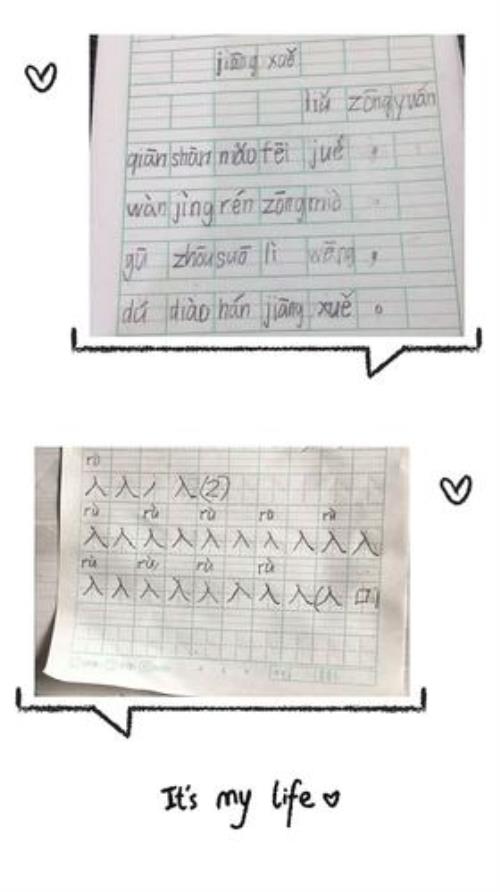 jiāng xuě
liǔ zōngyuán
qiān shān nǎo fēi jué ，
wàn jìng rén zōng miò 。
gū zhōu suō lì wēng ，
dú diào hán jiāng xuě 。
rù
入 入 丿 入(2)
rù rù rù rù rù
入 入 入 入 入 入 入 入 入 入
rù rù, rù rù
入 入 入 入 入 入 入 入(入 口)
It's my life